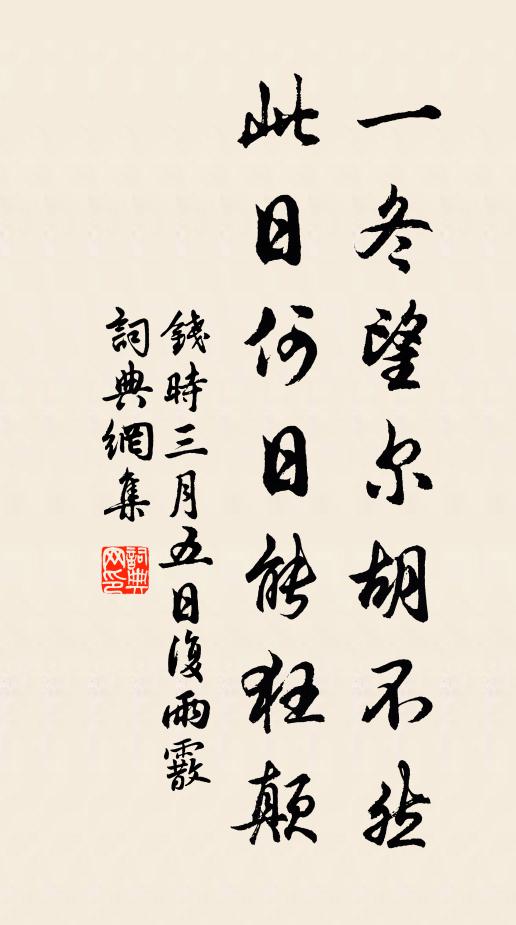 一冬望尔胡不然
此日何日能狂颠
錢時三月五日復雨霰
詞典網集
詞典网印